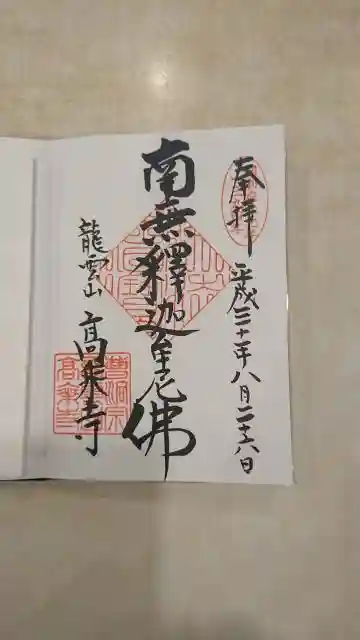 奉拝
平成三十一年八月二十六日
南無釋迦牟尼佛
龍雲山
高乗寺
曹洞宗
高乗寺